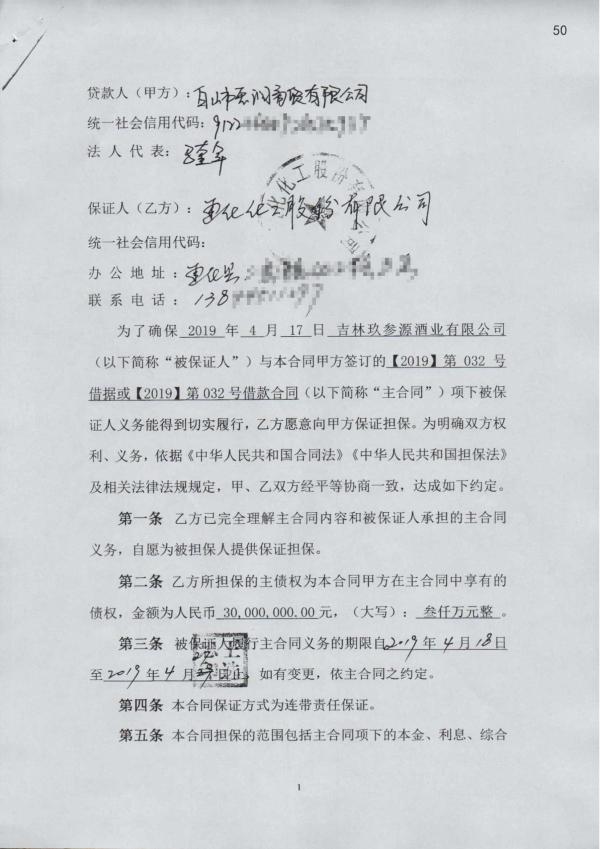 50
贷款人（甲方）：白山市 商贸有限公司
统一社会信用代码：9122
法 人 代 表：
化化工股份有
保证人（乙方）：通化化工股份有限公司
统一社会信用代码：
办 公 地 址：通化县
联 系 电 话 ：138
为了确保 2019 年 4 月 17 日 吉林玖参源酒业有限公司
（以下简称“被保证人”）与本合同甲方签订的【2019】第 032 号
借据或【2019】第 032 号借款合同（以下简称“主合同”）项下被保
证人义务能得到切实履行，乙方愿意向甲方保证担保。为明确双方权
利、义务，依据《中华人民共和国合同法》《中华人民共和国担保法》
及相关法律法规规定，甲、乙双方经平等协商一致，达成如下约定。
第一条 乙方已完全理解主合同内容和被保证人承担的主合同
义务，自愿为被担保人提供保证担保。
第二条 乙方所担保的主债权为本合同甲方在主合同中享有的
债权，金额为人民币 30,000,000.00 元，（大写）： 叁仟万元整 。
第三条 被保证人履行主合同义务的期限自2019 年 4 月 18 日
至 2019 年 4 月 日止，如有变更，依主合同之约定。
第四条 本合同保证方式为连带责任保证。
第五条 本合同担保的范围包括主合同项下的本金、利息、综合
1